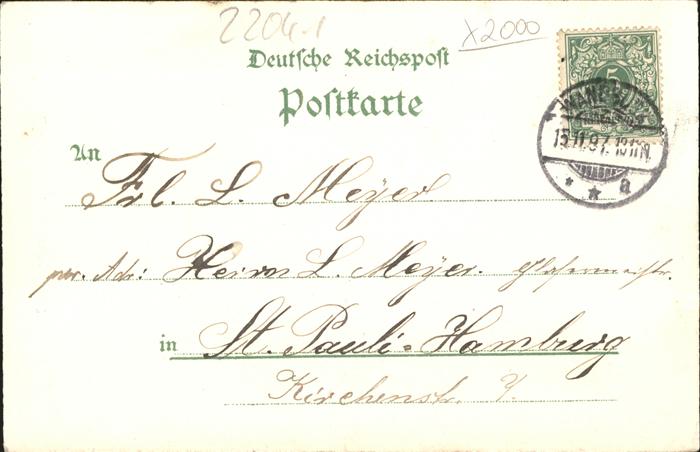 2204.1
x2000
Deutsche Reichspost
Postkarte
5
15.11.97. 
* * a
An
Frl. L. Meyer.
per. Adr: Herrn L. Meyer. Glasermeistr.
in St. Pauli-Hamburg
Kirchenstr. 7.